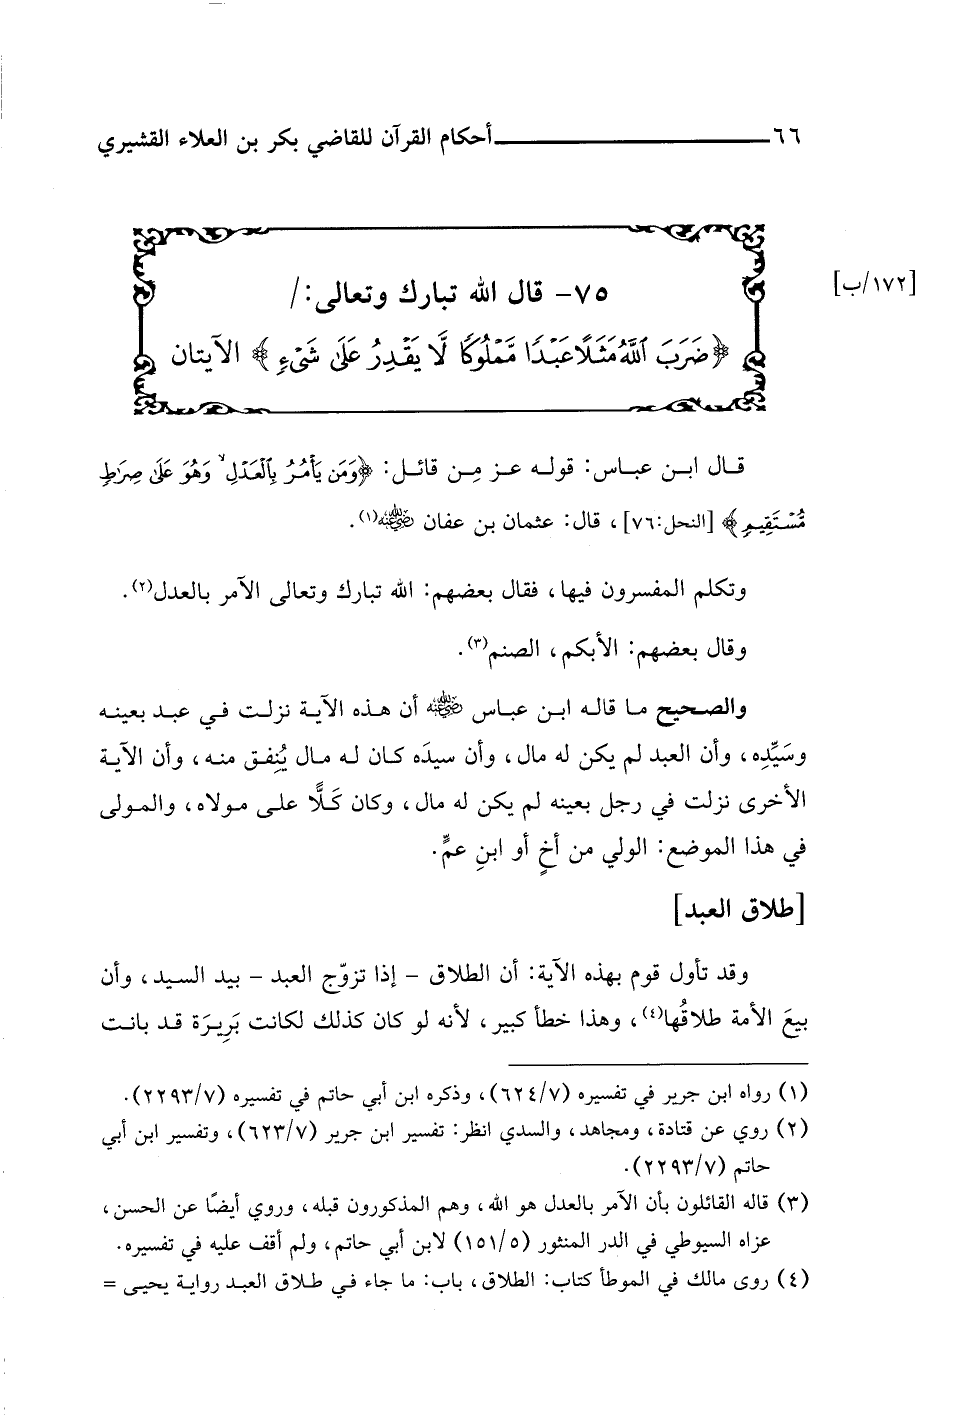 ٦٦ أحكام القرآن للقاضي بكر بن العلاء القشيري
[١٧٢/ب]
٧٥- قال الله تبارك وتعالى: /
﴿ضَرَبَ ٱللَّهُ مَثَلًا عَبْدًا مَّمْلُوكًا لَّا يَقْدِرُ عَلَىٰ شَىْءٍ﴾ الآيتان
قال ابن عباس: قوله عز مِن قائل: ﴿وَمَن يَأْمُرُ بِٱلْعَدْلِ ۙ وَهُوَ عَلَىٰ صِرَٰطٍ
مُّسْتَقِيمٍ﴾ [النحل:٧٦]، قال: عثمان بن عفان رضي الله عنه(١).
وتكلم المفسرون فيها، فقال بعضهم: الله تبارك وتعالى الآمر بالعدل(٢).
وقال بعضهم: الأبكم، الصنم(٣).
والصحيح ما قاله ابن عباس رضي الله عنه أن هذه الآية نزلت في عبد بعينه
وسَيِّدِه، وأن العبد لم يكن له مال، وأن سيدَه كان له مال يُنِفق منه، وأن الآية
الأخرى نزلت في رجل بعينه لم يكن له مال، وكان كَلًّا على مولاه، والمولى
في هذا الموضع: الولي من أخٍ أو ابنِ عمٍّ.
[طلاق العبد]
وقد تأول قوم بهذه الآية: أن الطلاق - إذا تزوّج العبد - بيد السيد، وأن
بيعَ الأمة طلاقُها(٤)، وهذا خطأ كبير، لأنه لو كان كذلك لكانت بَرِيرَة قد بانت
(١) رواه ابن جرير في تفسيره (٦٢٤/٧)، وذكره ابن أبي حاتم في تفسيره (٢٢٩٣/٧).
(٢) روي عن قتادة، ومجاهد، والسدي انظر: تفسير ابن جرير (٦٢٣/٧)، وتفسير ابن أبي
حاتم (٢٢٩٣/٧).
(٣) قاله القائلون بأن الآمر بالعدل هو الله، وهم المذكورون قبله، وروي أيضًا عن الحسن،
عزاه السيوطي في الدر المنثور (١٥١/٥) لابن أبي حاتم، ولم أقف عليه في تفسيره.
(٤) روى مالك في الموطأ كتاب: الطلاق، باب: ما جاء في طلاق العبد رواية يحيى =